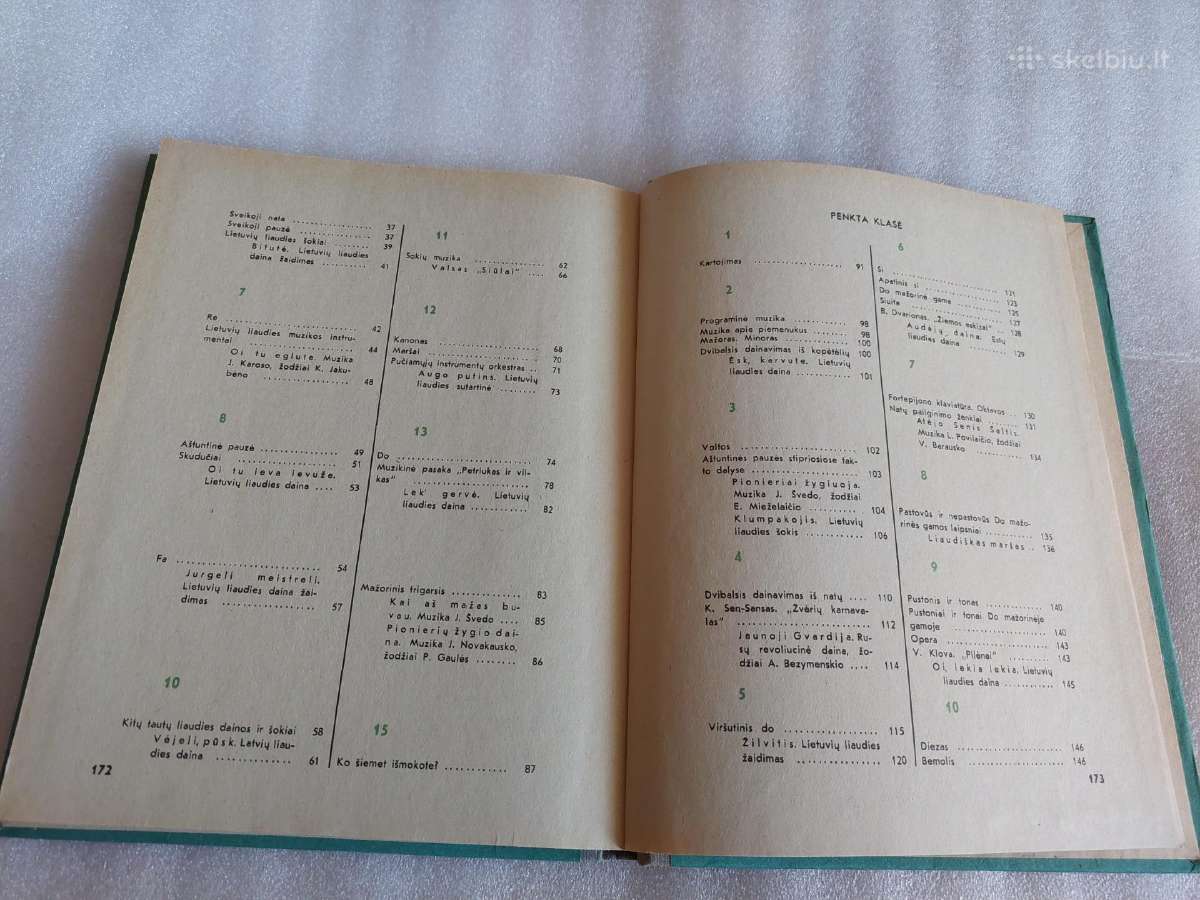 skelbiu.lt
Sveikoji nata 37
Sveikoji pauzė 37
Lietuvių liaudies šokiai 39
Bitutė. Lietuvių liaudies
daina žaidimas 41
7
Re 42
Lietuvių liaudies muzikos instru-
mentai 44
Oi tu eglute. Muzika
J. Karoso, žodžiai K. Jaku-
bėno 48
8
Aštuntinė pauzė 49
Skudučiai 51
Oi tu ieva ievuže.
Lietuvių liaudies daina 53
Fa 54
Jurgeli meistreli.
Lietuvių liaudies daina žai-
dimas 57
10
Kitų tautų liaudies dainos ir šokiai 58
Vėjeli, pūsk. Latvių liau-
dies daina 61
172
11
Šokių muzika 62
Valsas „Siūlai“ 66
12
Kanonas 68
Maršai 70
Pučiamųjų instrumentų orkestras 71
Augo putins. Lietuvių
liaudies sutartinė 73
13
Do 74
Muzikinė pasaka „Petriukas ir vil-
kas“ 78
Lek' gervė. Lietuvių
liaudies daina 82
Mažorinis trigarsis 83
Kai aš mažas bu-
vau. Muzika J. Švedo 85
Pionierių žygio dai-
na. Muzika J. Novakausko,
žodžiai P. Gaulės 86
15
Ko šiemet išmokote? 87
PENKTA KLASĖ
1
Kartojimas 91
2
Programinė muzika 98
Muzika apie piemenukus 98
Mažoras. Minoras 100
Dvibalsis dainavimas iš kopėtėlių 100
Ėsk, karvute. Lietuvių
liaudies daina 101
3
Valtos 102
Aštuntinės pauzės stipriosiose tak-
to dalyse 103
Pionieriai žygiuoja.
Muzika J. Švedo, žodžiai
E. Mieželaičio 104
Klumpakojis. Lietuvių
liaudies šokis 106
4
Dvibalsis dainavimas iš natų 110
K. Sen-Sansas. „Žvėrių karnava-
las“ 112
Jaunoji Gvardija. Ru-
sų revoliucinė daina, žo-
džiai A. Bezymenskio 114
5
Viršutinis do 115
Žilvitis. Lietuvių liaudies
žaidimas 120
6
Si 121
Apatinis si 123
Do mažorinė gama 125
Siuita 127
B. Dvarionas. „Žiemos eskizai“ 128
Audėjų daina. Estų
liaudies daina 129
7
Fortepijono klaviatūra. Oktavos 130
Natų pailginimo ženklai 131
Atėjo Senis Šaltis.
Muzika L. Povilaičio, žodžiai
V. Barausko 134
8
Pastovūs ir nepastovūs Do mažo-
rinės gamos laipsniai 135
Liaudiškas maršas 136
9
Pustonis ir tonas 140
Pustoniai ir tonai Do mažorinėje
gamoje 140
Opera 143
V. Klova. „Pilėnai“ 143
Oi, lekia lekia. Lietuvių
liaudies daina 145
10
Diezas 146
Bemolis 146
173